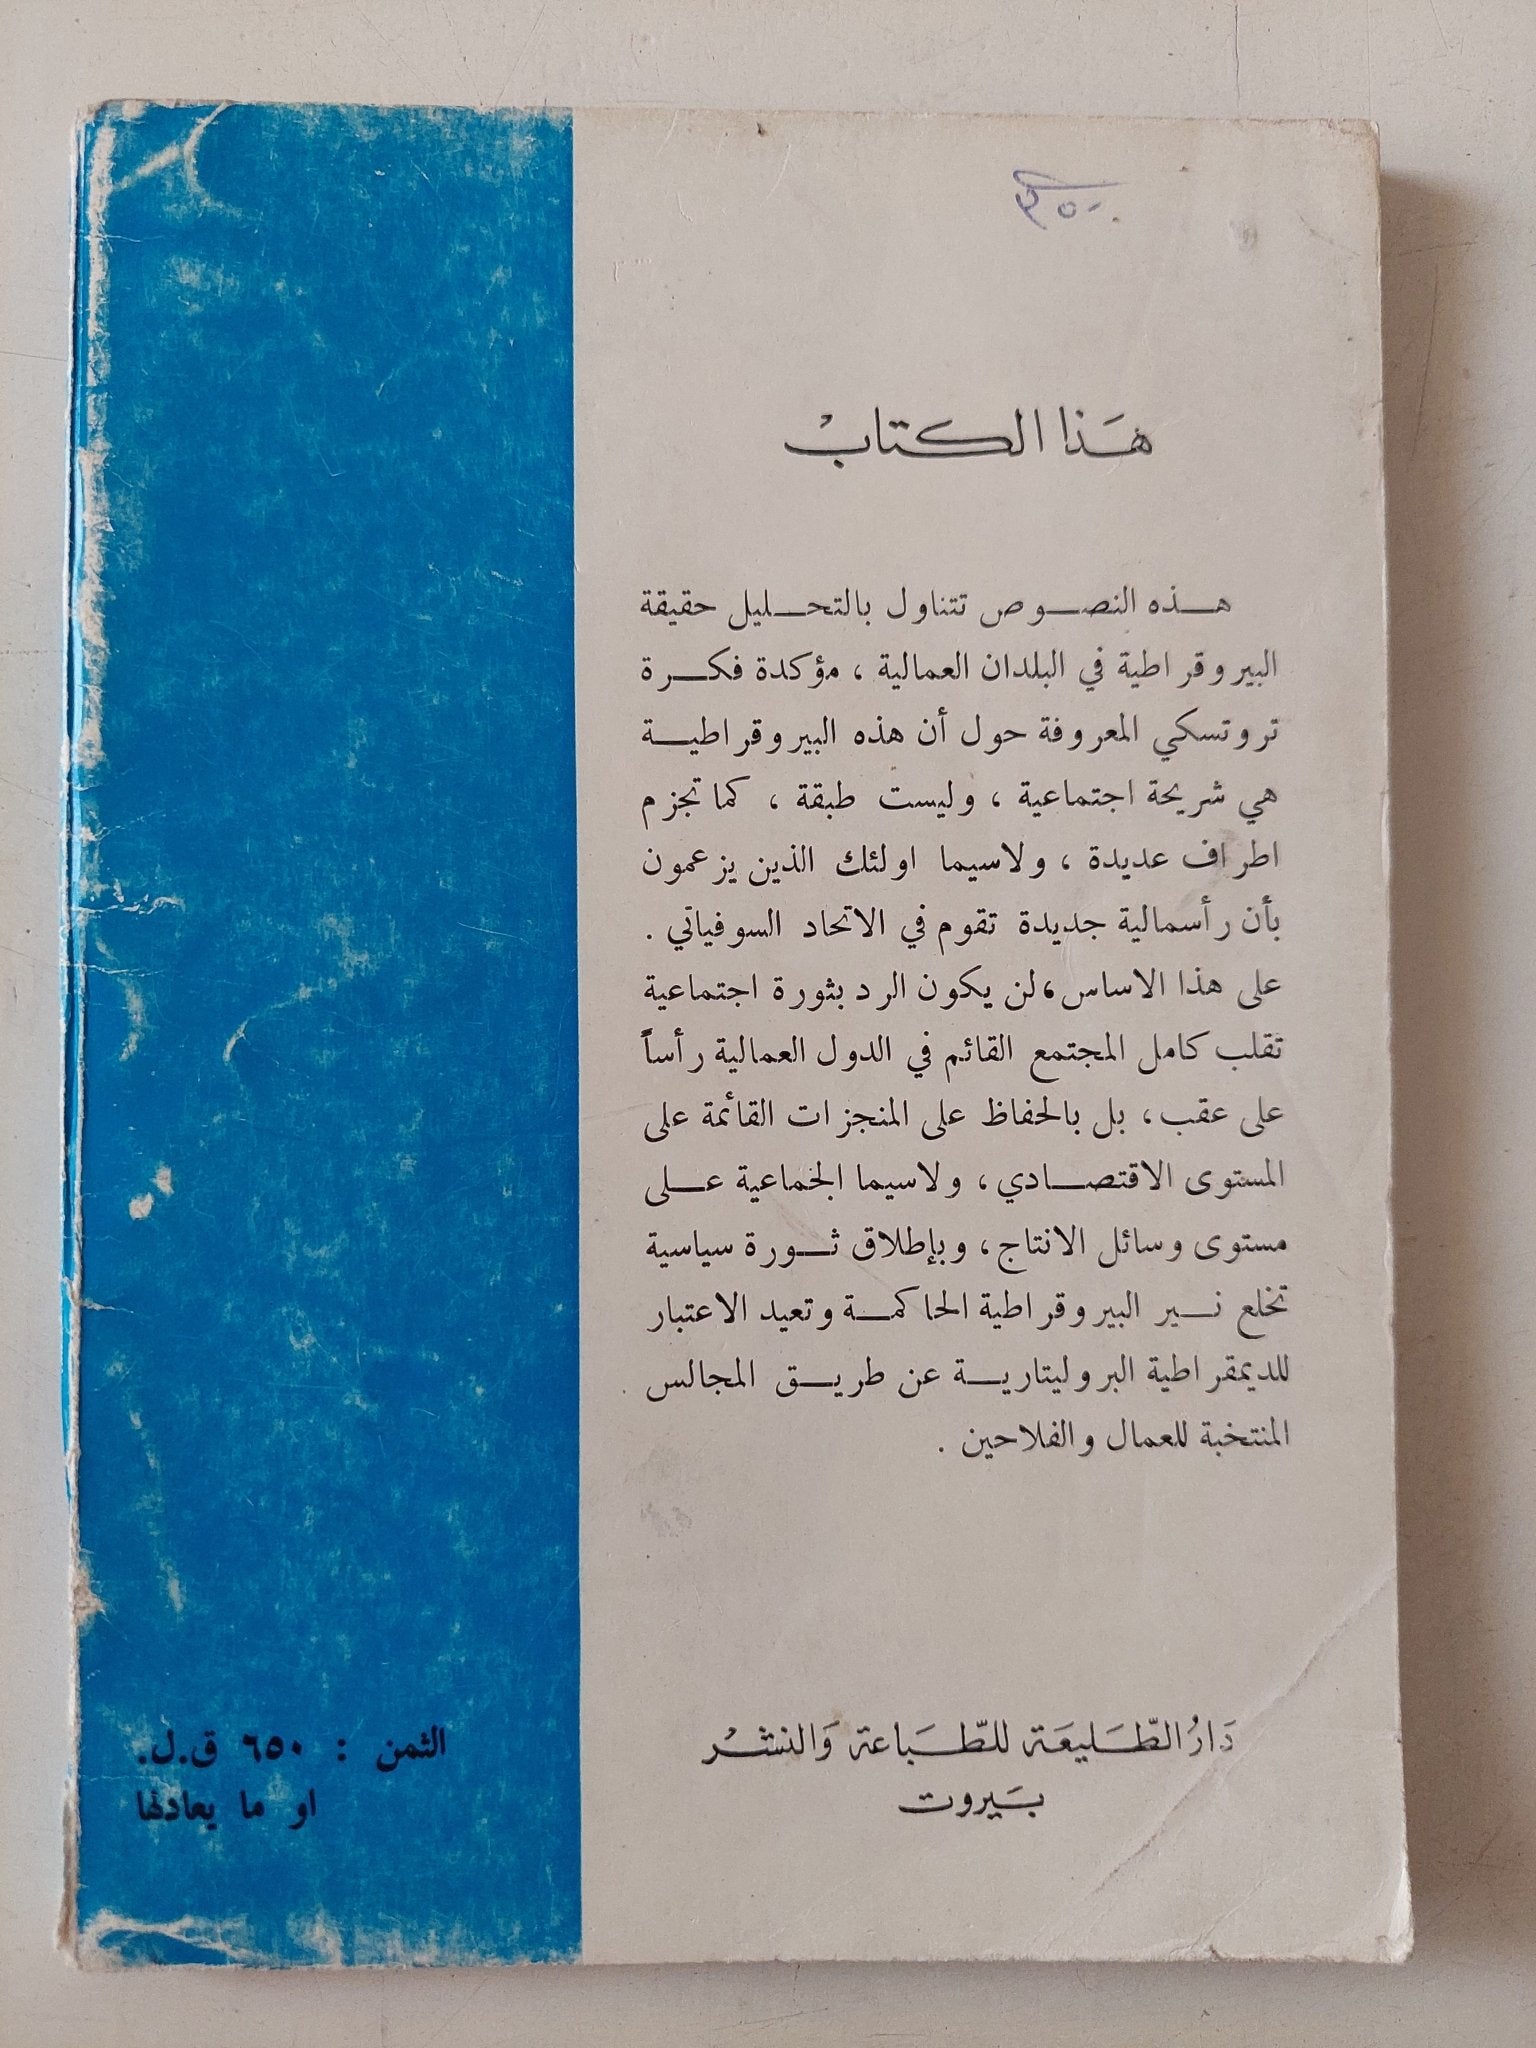 هَذا الكتابْ
هذه النصوص تتناول بالتحليل حقيقة
البيروقراطية في البلدان العمالية ، مؤكدة فكرة
تروتسكي المعروفة حول أن هذه البيروقراطية
هي شريحة اجتماعية ، وليست طبقة ، كما تجزم
اطراف عديدة ، ولاسيما اولئك الذين يزعمون
بأن رأسمالية جديدة تقوم في الاتحاد السوفياتي .
على هذا الاساس، لن يكون الرد بثورة اجتماعية
تقلب كامل المجتمع القائم في الدول العمالية رأساً
على عقب ، بل بالحفاظ على المنجزات القائمة على
المستوى الاقتصادي ، ولاسيما الجماعية على
مستوى وسائل الانتاج ، وبإطلاق ثورة سياسية
تخلع نير البيروقراطية الحاكمة وتعيد الاعتبار
للديمقراطية البروليتارية عن طريق المجالس
المنتخبة للعمال والفلاحين .
دَارُ الطّليعَة للطّبَاعة وَالنشْر
بَيروت
الثمن : ٦٥٠ ق.ل.
او ما يعادلها